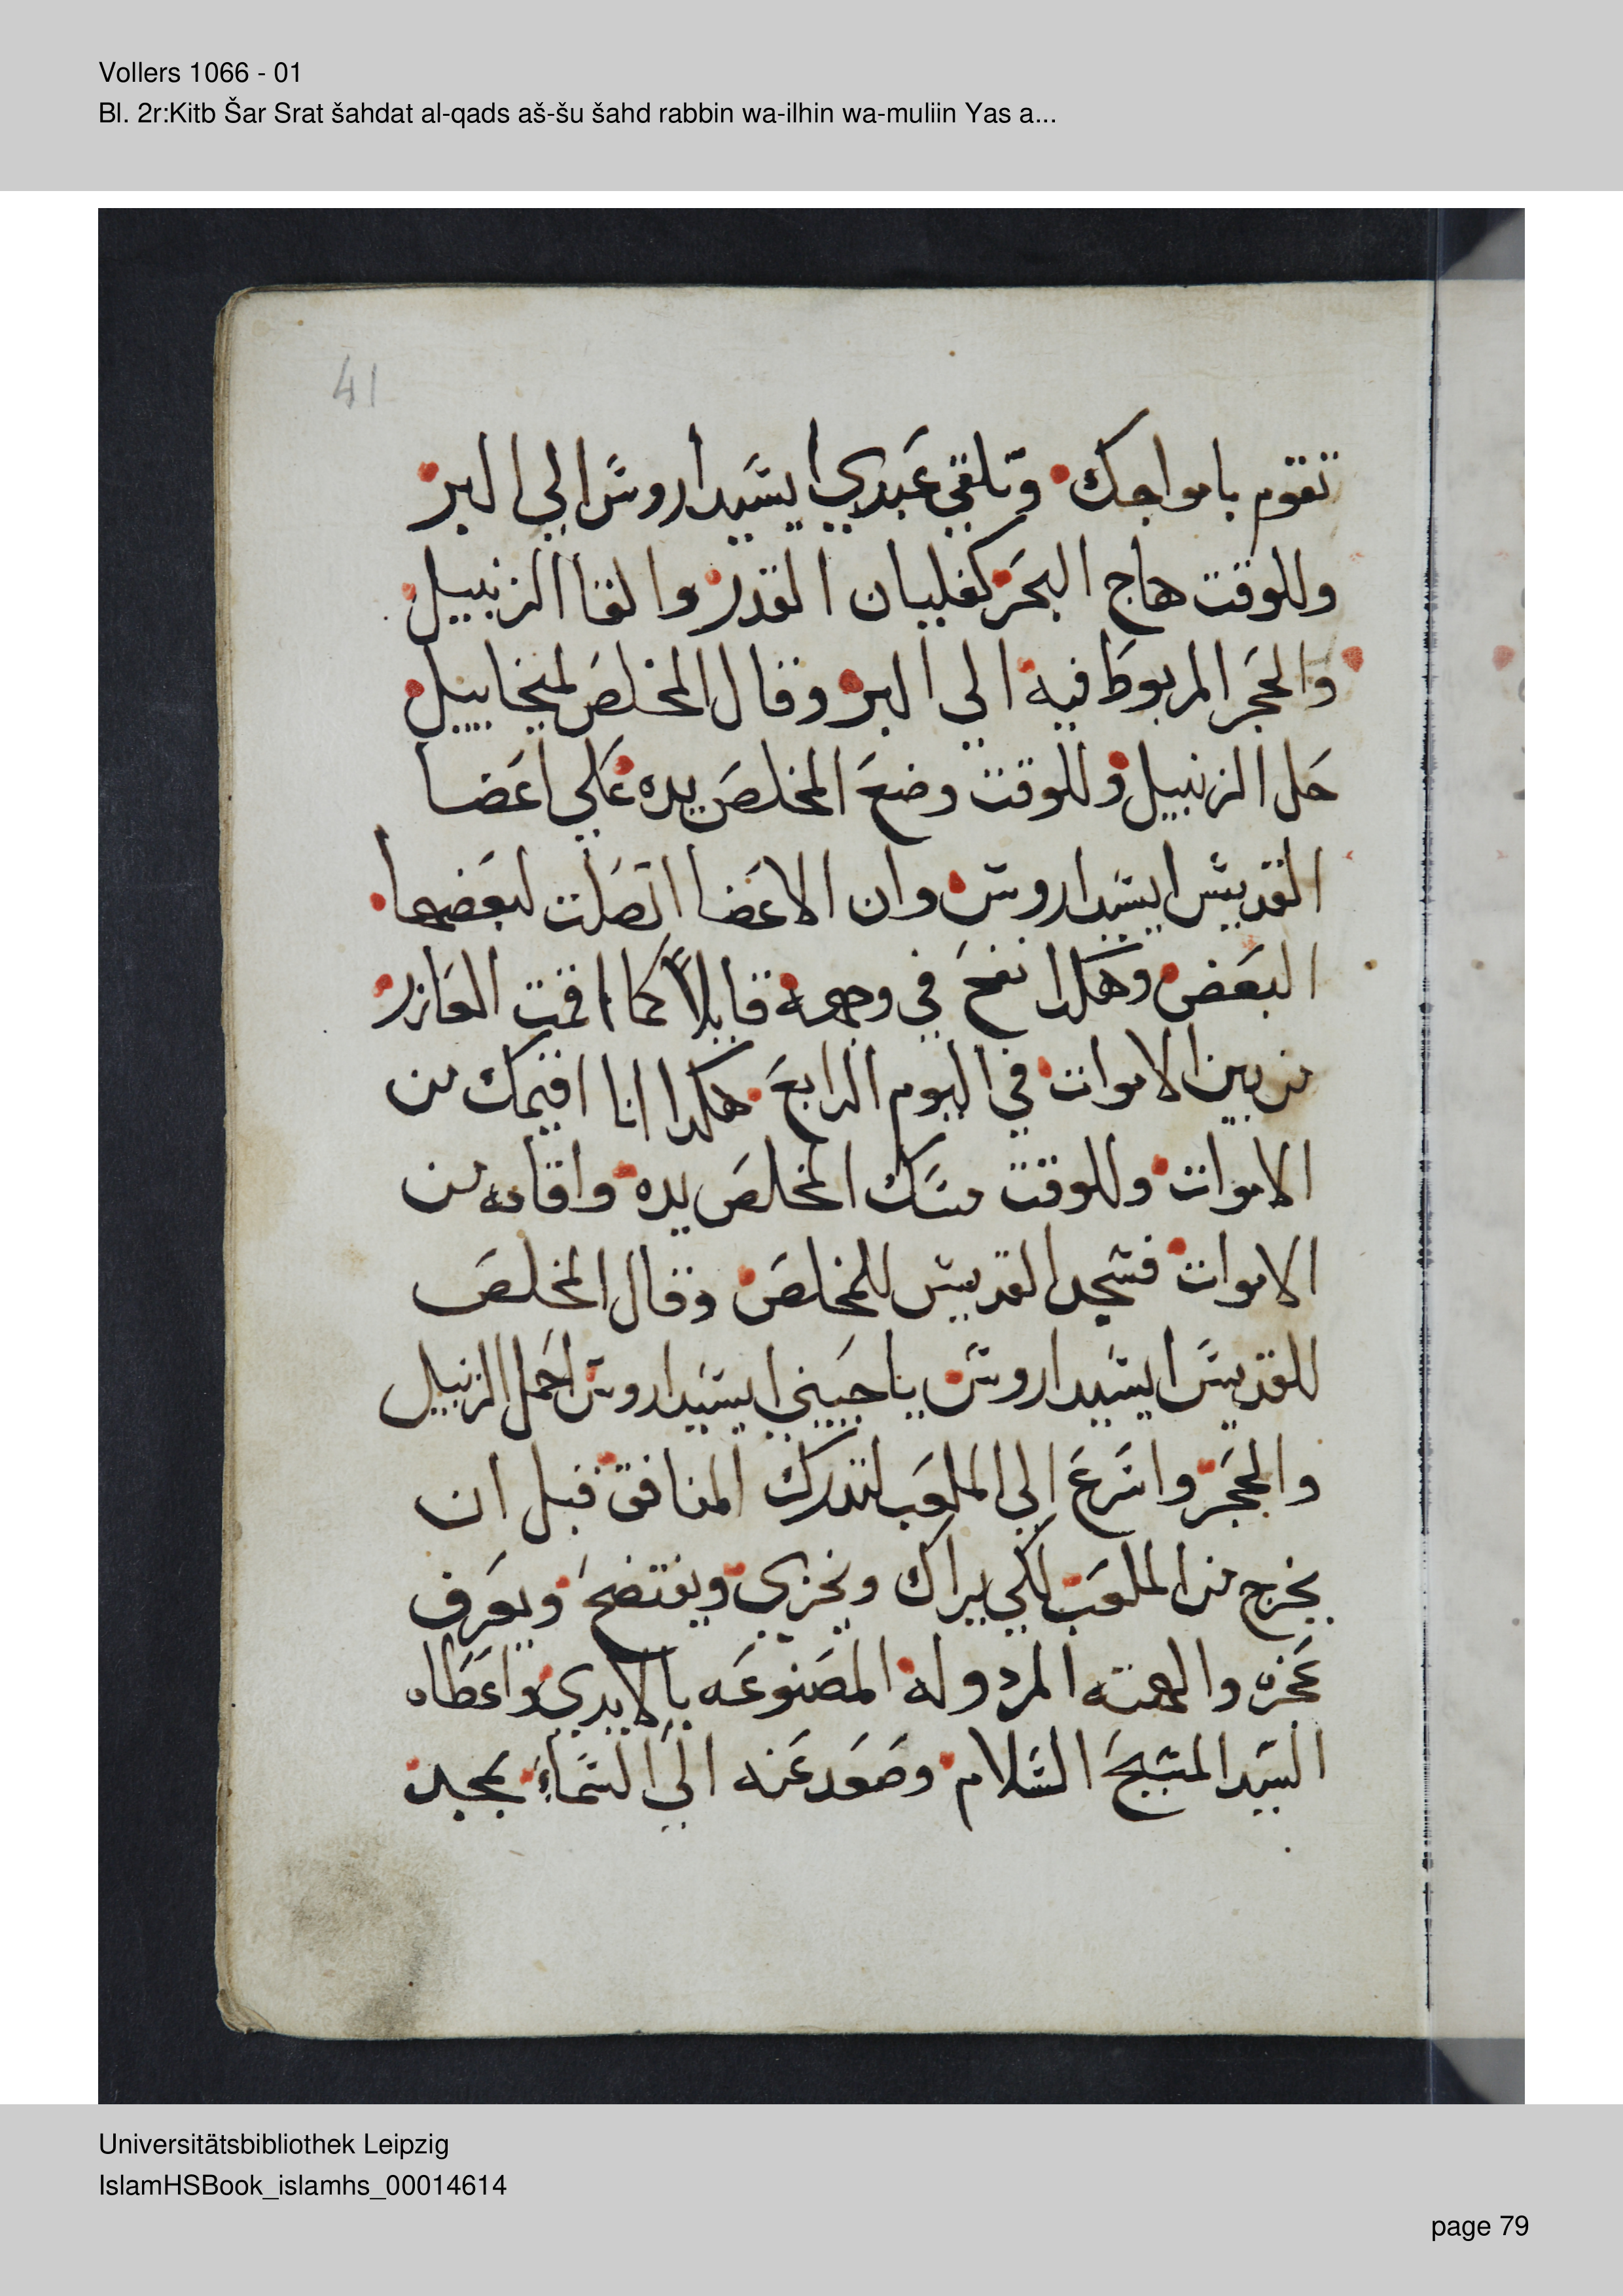 Vollers 1066 - 01
Bl. 2r:Kitb Šar Srat šahdat al-qads aš-šu šahd rabbin wa-ilhin wa-muliin Yas a...
41
تقوم بامواجك وتلقي عبدي ايسيداروس الي البر
وللوقت هاج البحر كغليان القدر والقا الزنبيل
والحجر المربوط فيه الي البر وقال المخلص لميخاييل
حل الزنبيل وللوقت وضع المخلص يده علي اعضا
القديس ايسيداروس وان الاعضا اتصلت لبعضها
البعض وهكدا نفخ في وجهه قايلاً كما اقمت العازر
من بين الاموات في اليوم الرابع هكدا انا اقيمك من
الاموات وللوقت مسك المخلص يده واقامه من
الاموات فسجد القديس للمخلص وقال المخلص
للقديس ايسيداروس ياحبيبي ايسيداروس احمل الزنبيل
والحجر واسرع الي الملعب لتدرك المنافق قبل ان
يخرج من الملعب لكي يراك ويخزي ويفتضح ويعرف
عجزه والهته المردوله المصنوعه بالايدي واعطاه
السيد المسيح السلام وصعد عنه الي السماء بمجد
Universitätsbibliothek Leipzig
IslamHSBook_islamhs_00014614
page 79